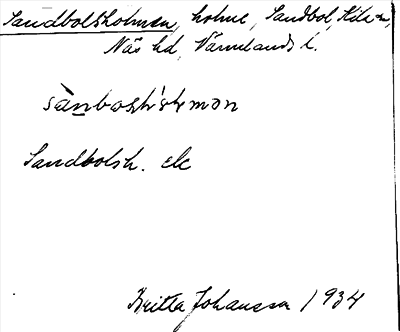 Sandbolsholmen, holme, Sandbol, Kila sn,
Näs hd, Värmlands l.
Sandbolsh. ek
Britta Johansson 1934